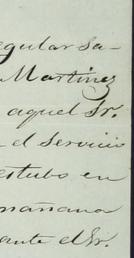 regular sa-
Martinez
aquel Sr.
el servicio
estubo en
mañana
ante el Sr.